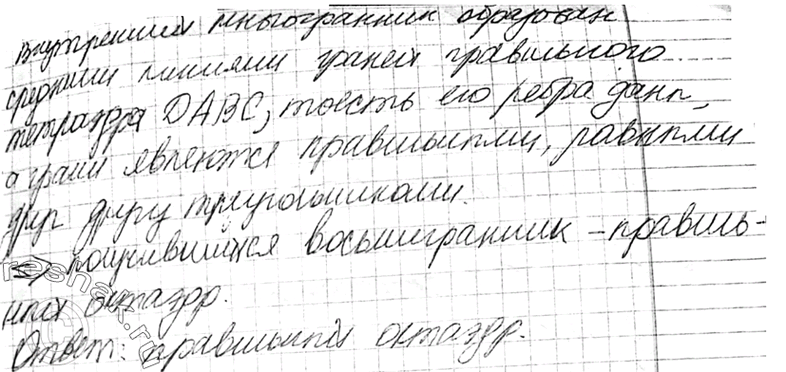 внутренний многогранник образован
средними линиями граней правильного
тетраэдра DABC, тоесть его ребра равн,
а грани являются правильными, равными
друг другу треугольниками.
=> получившийся восьмигранник - правиль-
ный октаэдр.
Ответ: правильный октаэдр.